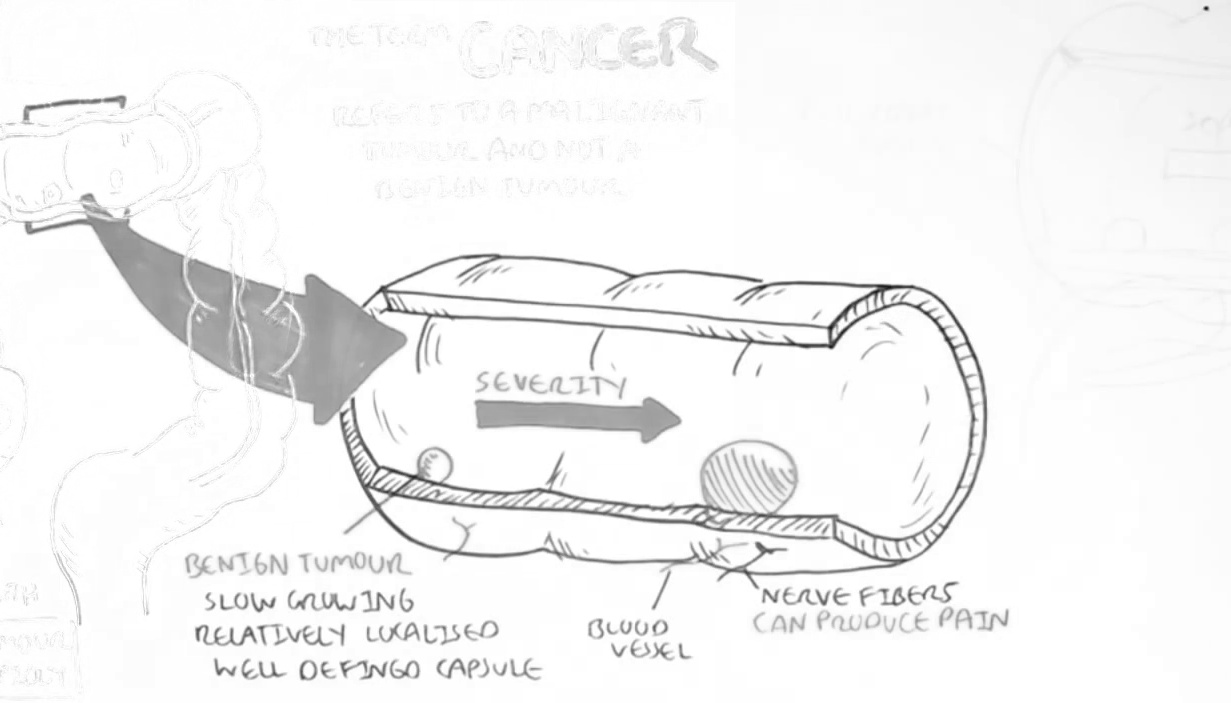 THE TERM CANCER
REFERS TO A MALIGNANT
TUMOUR AND NOT A
BENIGN TUMOUR
SEVERITY
BENIGN TUMOUR
SLOW GROWING
RELATIVELY LOCALISED
WELL DEFINGD CAPSULE
BLOOD
VESSEL
NERVE FIBERS
CAN PRODUCE PAIN